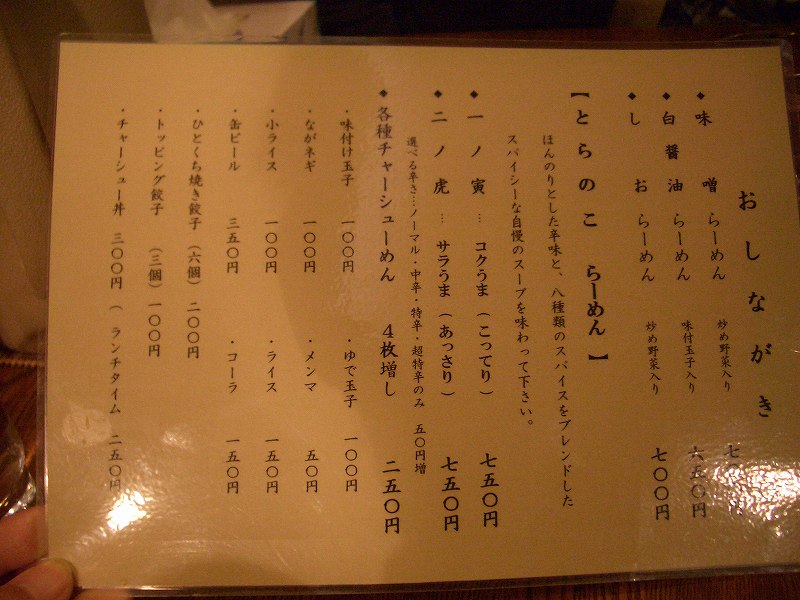 おしながき
◆味噌らーめん 炒め野菜入り
◆白醤油らーめん 味付玉子入り 六五〇円
◆しおらーめん 炒め野菜入り 七〇〇円
【とらのこ らーめん】
ほんのりとした辛味と、八種類のスパイスをブレンドした
スパイシーな自慢のスープを味わって下さい。
◆一ノ寅…コクうま（こってり） 七五〇円
◆二ノ虎…サラうま（あっさり） 七五〇円
選べる辛さ…ノーマル・中辛・特辛・超特辛のみ 五〇円増
◆各種チャーシューめん 4枚増し 二五〇円
・味付け玉子 一〇〇円 ・ゆで玉子 一〇〇円
・ながネギ 一〇〇円 ・メンマ 五〇円
・小ライス 一〇〇円 ・ライス 一五〇円
・缶ビール 三五〇円 ・コーラ 一五〇円
・ひとくち焼き餃子（六個）二〇〇円
・トッピング餃子（三個）一〇〇円
・チャーシュー丼 三〇〇円（ランチタイム 二五〇円